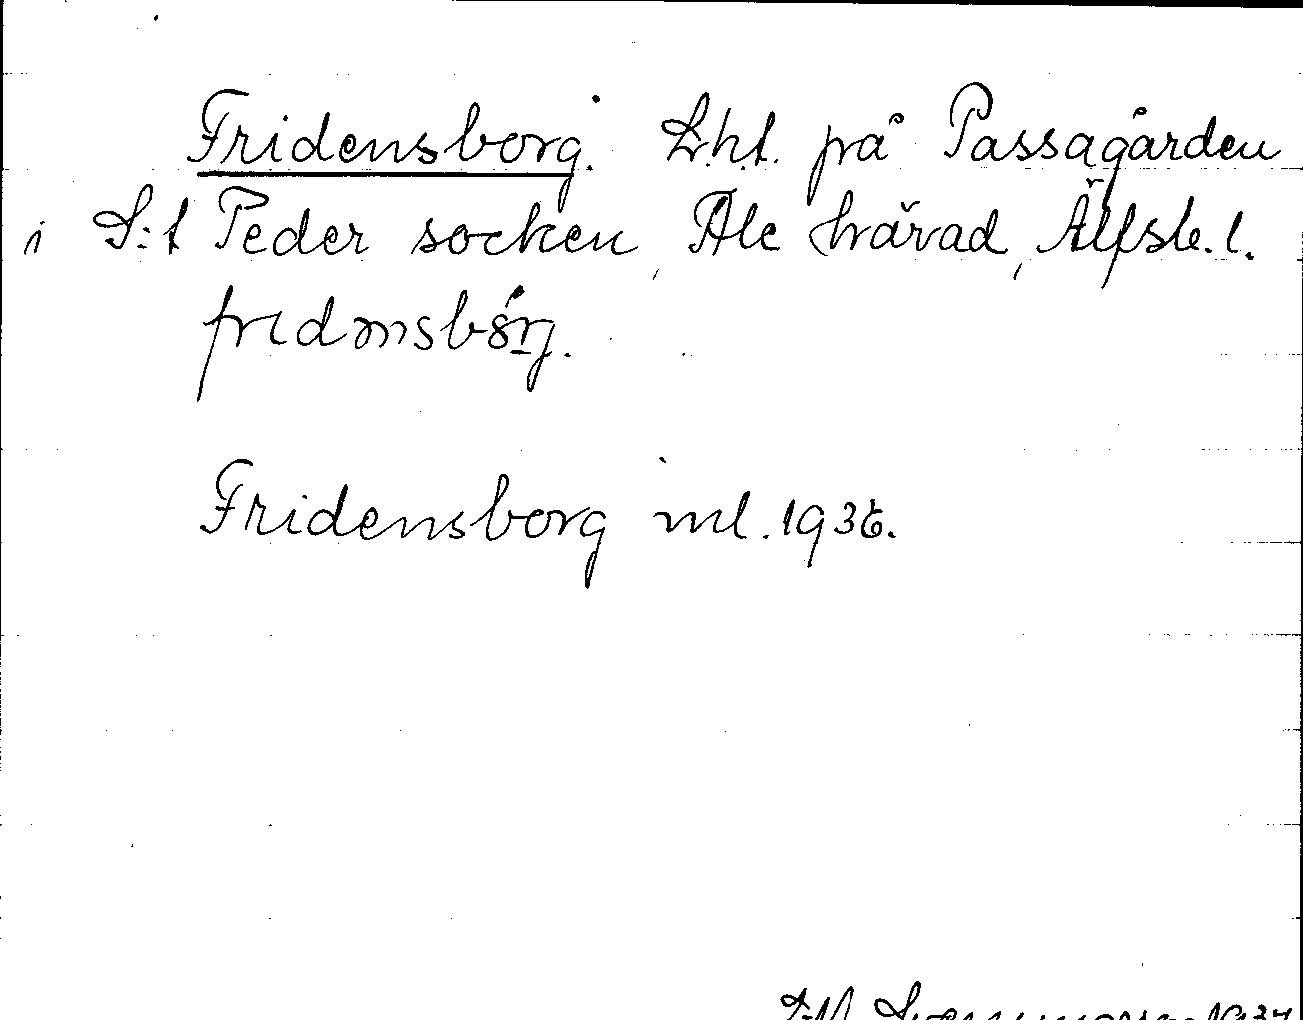 Fridensborg. L.h.t. på Passagården
i S:t Peder socken, Ale härad, Älfsb. l.
fridənsbörj.
Fridensborg ml. 1936.
1937